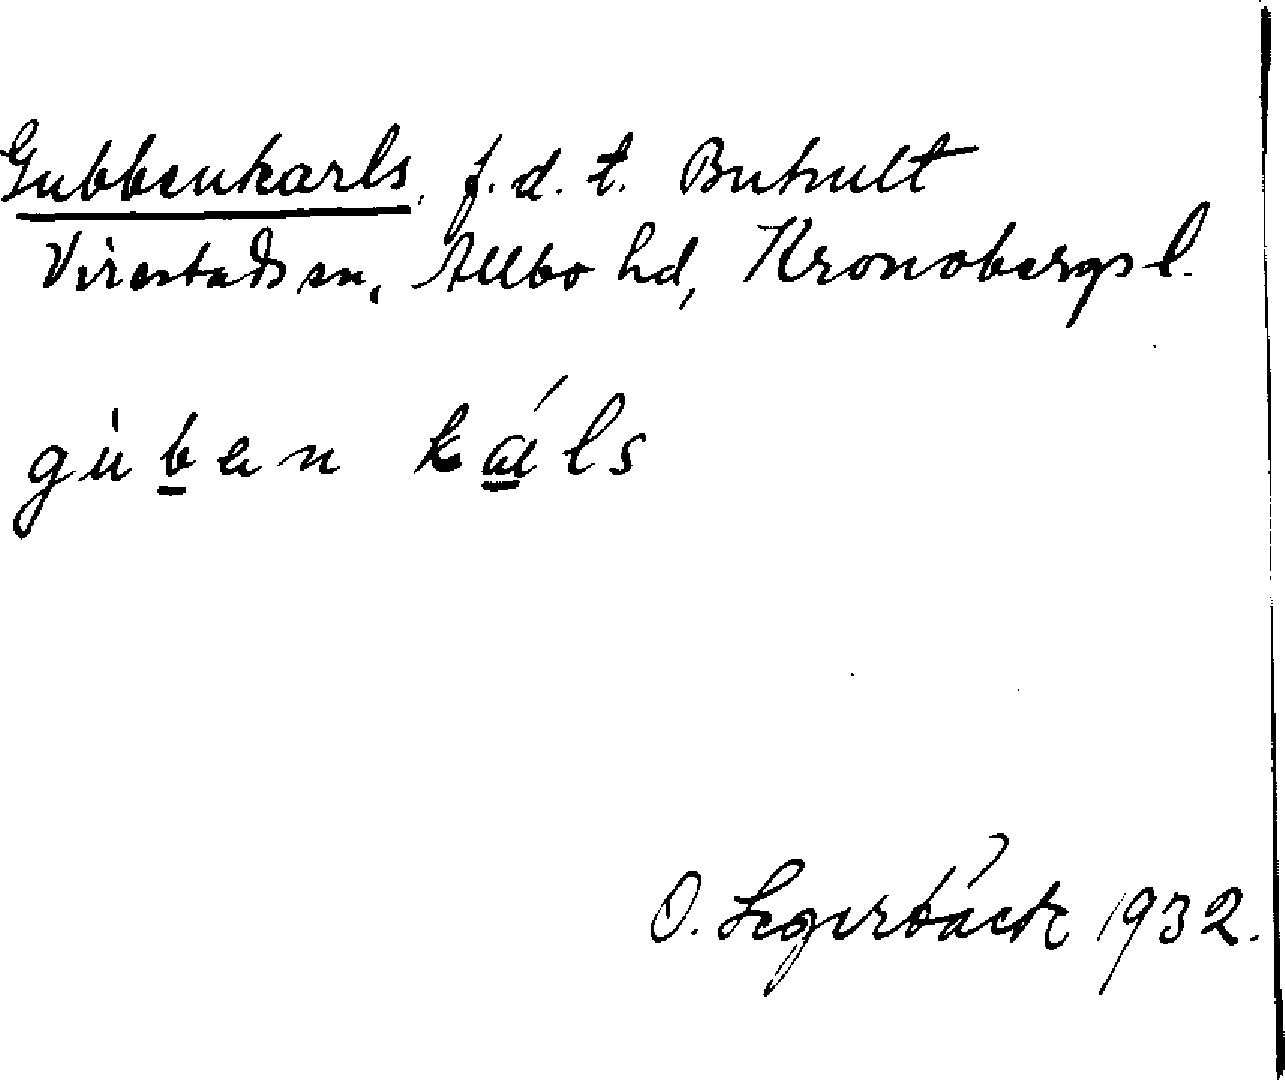 Gubbenkarls, f. d. t. Buhult
Virestads sn, Allbo hd, Kronobergs l.
gùben káls
O. Segerbäck 1932.